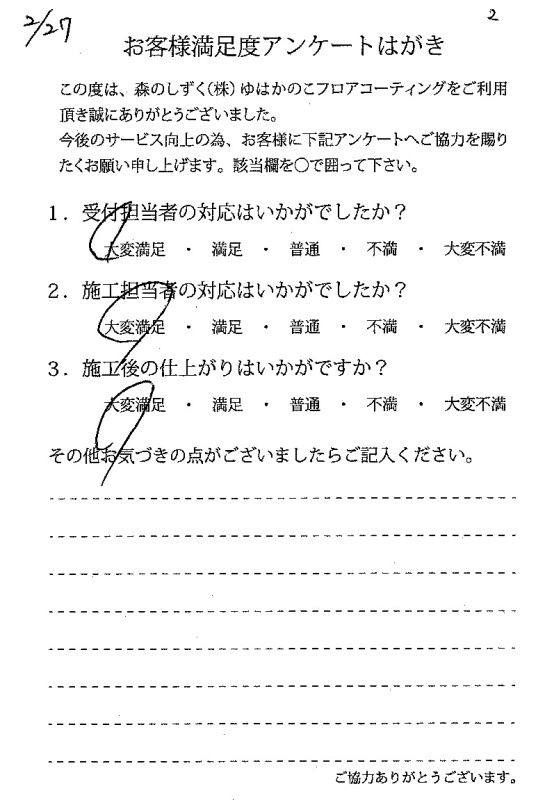 2/27
2
お客様満足度アンケートはがき
この度は、森のしずく(株)ゆはかのこフロアコーティングをご利用
頂き誠にありがとうございました。
今後のサービス向上の為、お客様に下記アンケートへご協力を賜り
たくお願い申し上げます。該当欄を○で囲って下さい。
1．受付担当者の対応はいかがでしたか？
大変満足 ・ 満足 ・ 普通 ・ 不満 ・ 大変不満
2．施工担当者の対応はいかがでしたか？
大変満足 ・ 満足 ・ 普通 ・ 不満 ・ 大変不満
3．施工後の仕上がりはいかがですか？
大変満足 ・ 満足 ・ 普通 ・ 不満 ・ 大変不満
その他お気づきの点がございましたらご記入ください。
ご協力ありがとうございます。